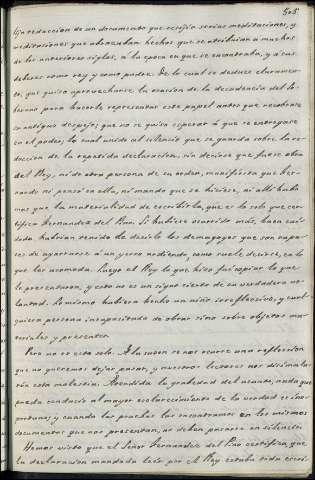 505
la redaccion de un documento que ecsigia serias meditaciones, y
meditaciones que abrazaban hechos que se atribuian a muchos
de los anteriores siglos, a la epoca en que se encontraba, y a sus
deberes como rey y como padre. De lo cual se deduce claramen-
te, que quiso aprovecharse la ocasion de la decadencia del So-
berano para hacerle representar este papel antes que recobrase
su antiguo despejo; que no se quiso esperar á que se entregase
en el poder, lo cual unido al silencio que se guarda sobre la re-
daccion de la repetida declaracion, sin decirse que fuese obra
del Rey, ni de otra persona de su orden, manifiesta que Fer-
nando ni pensó en ella, ni mandó que se hiciese, ni alli hubo
mas que la materialidad de escribirla, que es lo solo que cer-
tifica Fernandez del Pino. Si hubiese ocurrido mas, buen cui-
dado habrian tenido de decirlo los demagogos que son capa-
ces de agarrarse á un yerro ardiendo, como suele decirse, en lo
que les acomoda. Luego el Rey lo que hizo fué copiar lo que
le presentaron, y esto no es un signo cierto de su verdadera vo-
luntad. Lo mismo hubiera hecho un niño irreflecsivo, y cual-
quiera persona incapacitada de obrar sino sobre objetos ma-
teriales y presentes.
Pero no es esto solo. A la sazon se nos ocurre una reflecsion
que no queremos dejar pasar, y nuestros lectores nos disimula-
rán esta molestia. Atendida la gravedad del asunto, nada que
pueda conducir al mayor esclarecimiento de la verdad es inos-
portuno; y cuando las pruebas las encontramos en los mismos
documentos que nos presentan, no deben pasarse en silencio.
Hemos visto que el Señor Fernandez del Pino certifica que
la declaracion mandada leer por el Rey estaba toda escri-